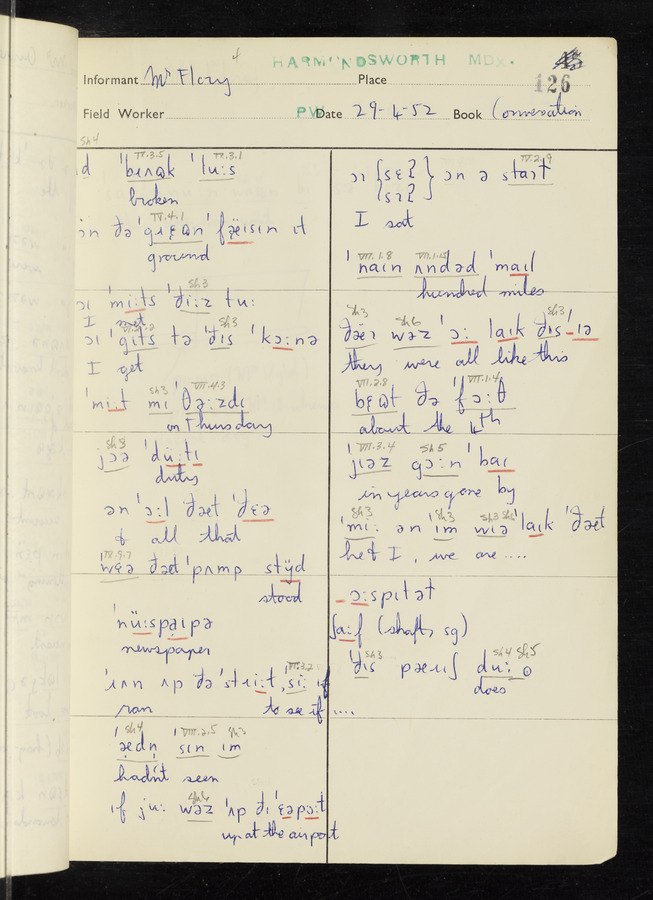 HARMONDSWORTH MDX.
Informant Mr Flory Place
126
Field Worker PW Date 29-4-52 Book Conversation
Sh4
d ˈbɛɹʌʊk ˈlu:s
broken
ɪn ðə ˈgɹɛʊn ˈfæisɪn ɪt
ground
ɔɪ ˈmi:ts ˈði:z tu:
I met
ɔɪ ˈgɪts tə ˈðɪs ˈkɔ:nə
I get
ˈmi:t mi ˈθə:zdɪ
on Thursday
jɔə ˈdü:tɪ
duty
ən ˈɔ:l ðət ˈðɛə
& all that
ˈwɛə ðət ˈpʌmp stÿd
stood
ˈnü:spaɪpə
newspaper
ˈɹʌn ʌp ðə ˈstɹi:t, si: ɪf
ran to see if ....
ædn̩ sɪn ɪm
hadn't seen
ɪf ju: wəz ˈʌp ðɪ ˈɛəpɔ:t
up at the airport
ɔɪ {sɛʔ
sɪʔ} ɔn ə staɪt
I sat
ˈnaɪn ʌndəd ˈmaɪl
hundred miles
ðeɪ wəz ˈɔ: laɪk ðɪs-ɪə
they were all like this
bɛʊt ðə ˈfɔ:θ
about the 4th
ˈjɪəz gɔ:n ˈbaɪ
in years gone by
ˈmi: ən ˈɪm wɪə ˈlaɪk ˈðət
he & I, we are ....
ɔ:spɪtət
ʃa:f (shaft, sg)
ˈðɪs pæɹɪʃ du:
does